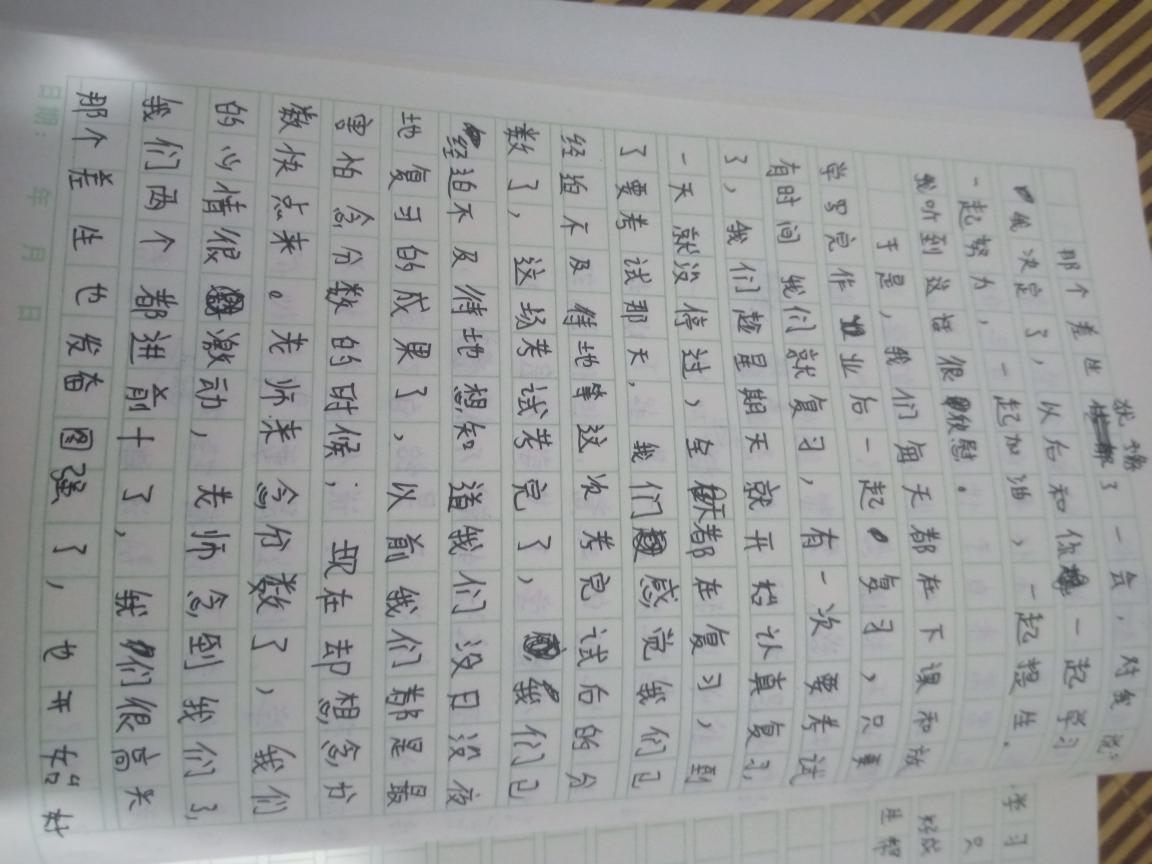 那个差生犹犹豫了一会，对我说：
我决定了，以后和你一起学习
一起努力，一起加油，一起挺生.
我听到这话很欣慰。
于是，我们每天都在下课和放
学写完作业后一起复习，只要
有时间我们就复习，有一次要考试
了，我们趁星期天就开始认真复习，
一天就没停过，全天都在复习，到
了要考试那天，我们感觉我们已
经迫不及待地等这次考完试后的分
数了，这场考试考完了，我们已
经迫不及待地想知道我们没日没夜
地复习的成果了，以前我们都是最
害怕念分数的时候，现在却想念分
数快点来。老师来念分数了，我们
的心情很激动，老师念到我们了，
我们两个都进前十了，我们很高兴
那个差生也发奋图强了，也开始好
日期： 年 月 日
学习
只
好成
生解